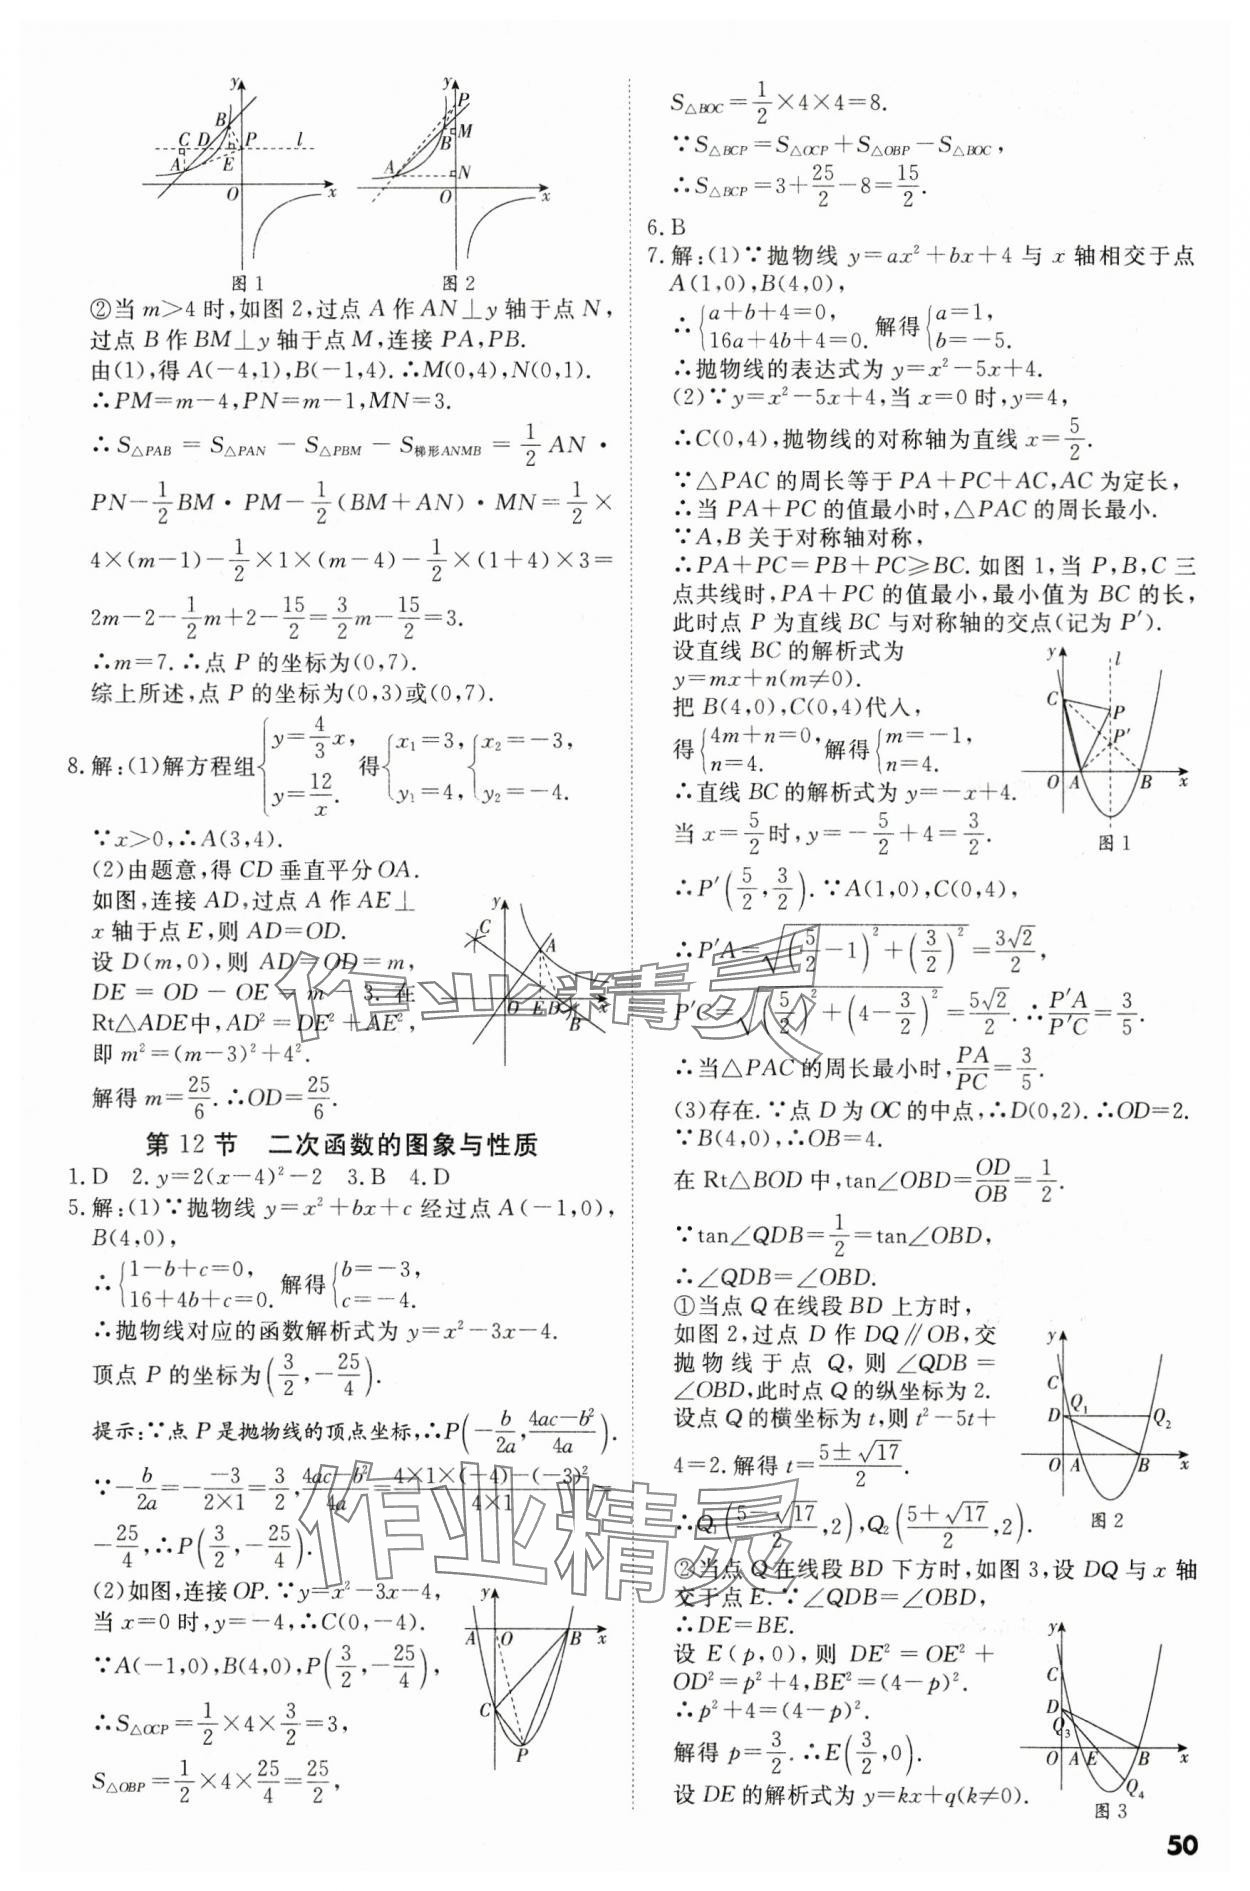 图 1
图 2
②当 m>4 时,如图 2,过点 A 作 AN⊥y 轴于点 N,
过点 B 作 BM⊥y 轴于点 M,连接 PA,PB.
由(1),得 A(-4,1),B(-1,4).∴M(0,4),N(0,1).
∴PM=m-4,PN=m-1,MN=3.
∴S△PAB = S△PAN - S△PBM - S梯形ANMB = 1/2 AN·
PN-1/2 BM·PM-1/2(BM+AN)·MN=1/2×
4×(m-1)-1/2×1×(m-4)-1/2×(1+4)×3=
2m-2-1/2m+2-15/2=3/2m-15/2=3.
∴m=7.∴点 P 的坐标为(0,7).
综上所述,点 P 的坐标为(0,3)或(0,7).
8.解:(1)解方程组{y=4/3x, y=12/x. 得{x₁=3, y₁=4, {x₂=-3, y₂=-4.
∵x>0,∴A(3,4).
(2)由题意,得 CD 垂直平分 OA.
如图,连接 AD,过点 A 作 AE⊥
x 轴于点 E,则 AD=OD.
设 D(m,0),则 AD=OD=m,
DE=OD-OE=m-3. 在
Rt△ADE中,AD²=DE²+AE²,
即 m²=(m-3)²+4².
解得 m=25/6.∴OD=25/6.
第 12 节 二次函数的图象与性质
1.D 2.y=2(x-4)²-2 3.B 4.D
5.解:(1)∵抛物线 y=x²+bx+c 经过点 A(-1,0),
B(4,0),
∴{1-b+c=0, 16+4b+c=0. 解得{b=-3, c=-4.
∴抛物线对应的函数解析式为 y=x²-3x-4.
顶点 P 的坐标为(3/2,-25/4).
提示:∵点 P 是抛物线的顶点坐标,∴P(-b/2a,(4ac-b²)/4a).
∵-b/2a=-(-3)/(2×1)=3/2,(4ac-b²)/4a=(4×1×(-4)-(-3)²)/(4×1)=
-25/4,∴P(3/2,-25/4).
(2)如图,连接 OP.∵y=x²-3x-4,
当 x=0 时,y=-4,∴C(0,-4).
∵A(-1,0),B(4,0),P(3/2,-25/4),
∴S△OCP=1/2×4×3/2=3,
S△OBP=1/2×4×25/4=25/2,
S△BOC=1/2×4×4=8.
∵S△BCP=S△OCP+S△OBP-S△BOC,
∴S△BCP=3+25/2-8=15/2.
6.B
7.解:(1)∵抛物线 y=ax²+bx+4 与 x 轴相交于点
A(1,0),B(4,0),
∴{a+b+4=0, 16a+4b+4=0. 解得{a=1, b=-5.
∴抛物线的表达式为 y=x²-5x+4.
(2)∵y=x²-5x+4,当 x=0 时,y=4,
∴C(0,4),抛物线的对称轴为直线 x=5/2.
∵△PAC 的周长等于 PA+PC+AC,AC 为定长,
∴当 PA+PC 的值最小时,△PAC 的周长最小.
∵A,B 关于对称轴对称,
∴PA+PC=PB+PC≥BC. 如图 1,当 P,B,C 三
点共线时,PA+PC 的值最小,最小值为 BC 的长,
此时点 P 为直线 BC 与对称轴的交点(记为 P′).
设直线 BC 的解析式为
y=mx+n(m≠0).
把 B(4,0),C(0,4)代入,
得{4m+n=0, n=4. 解得{m=-1, n=4.
∴直线 BC 的解析式为 y=-x+4.
当 x=5/2时,y=-5/2+4=3/2.
图 1
∴P′(5/2,3/2).∵A(1,0),C(0,4),
∴P′A=√((5/2-1)²+(3/2)²)=3√2/2,
P′C=√((5/2)²+(4-3/2)²)=5√2/2.∴P′A/P′C=3/5.
∴当△PAC 的周长最小时,PA/PC=3/5.
(3)存在.∵点 D 为 OC 的中点,∴D(0,2).∴OD=2.
∵B(4,0),∴OB=4.
在 Rt△BOD 中,tan∠OBD=OD/OB=1/2.
∵tan∠QDB=1/2=tan∠OBD,
∴∠QDB=∠OBD.
①当点 Q 在线段 BD 上方时,
如图 2,过点 D 作 DQ∥OB,交
抛物线于点 Q,则 ∠QDB=
∠OBD,此时点 Q 的纵坐标为 2.
设点 Q 的横坐标为 t,则 t²-5t+
4=2. 解得 t=(5±√17)/2.
图 2
∴Q₁((5-√17)/2,2),Q₂((5+√17)/2,2).
②当点 Q 在线段 BD 下方时,如图 3,设 DQ 与 x 轴
交于点 E.∵∠QDB=∠OBD,
∴DE=BE.
设 E(p,0),则 DE²=OE²+
OD²=p²+4,BE²=(4-p)².
∴p²+4=(4-p)².
解得 p=3/2.∴E(3/2,0).
设 DE 的解析式为 y=kx+q(k≠0).
图 3
50
作业精灵
作业精灵